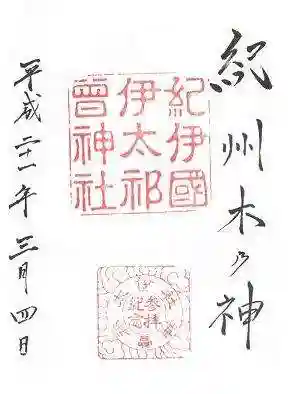 紀州木乃神
紀伊國
伊太祁
曾神社
参拝
平成二十一年三月四日